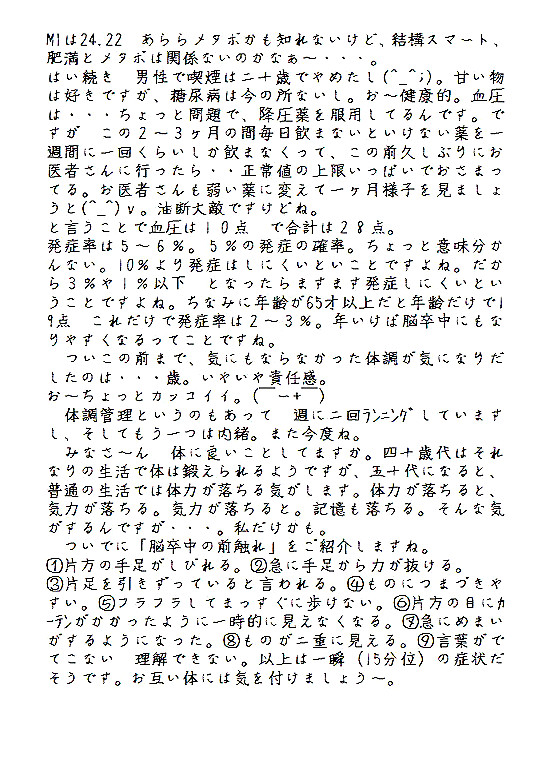 MIは24.22　あららメタボかも知れないけど、結構スマート、
肥満とメタボは関係ないのかなあ～・・・。
はい続き　男性で喫煙は二十歳でやめたし(^_^;)。甘い物
は好きですが、糖尿病は今の所ないし。お～健康的。血圧
は・・・ちょっと問題で、降圧薬を服用してるんです。で
すが　この２～３ヶ月の間毎日飲まないといけない薬を一
週間に一回くらいしか飲まなくって、この前久しぶりにお
医者さんに行ったら・・正常値の上限いっぱいでおさまっ
てる。お医者さんも弱い薬に変えて一ヶ月様子を見ましょ
うと(^_^)ｖ。油断大敵ですけどね。
と言うことで血圧は１０点　で合計は２８点。
発症率は５～６％。５％の発症の確率。ちょっと意味分か
んない。10％より発症はしにくいといことですよね。だか
ら３％や１％以下　となったらますます発症しにくいとい
うことですよね。ちなみに年齢が65才以上だと年齢だけで1
9点　これだけで発症率は２～３％。年いけば脳卒中にもな
りやすくなるってことですね。
　ついこの前まで、気にもならなかった体調が気になりだ
したのは・・・歳。いやいや責任感。
お～ちょっとカッコイイ。(￣ー+￣)
　体調管理というのもあって　週に二回ﾗﾝﾆﾝｸﾞしています
し、そしてもう一つは内緒。また今度ね。
　みなさ～ん　体に良いことしてますか。四十歳代はそれ
なりの生活で体は鍛えられるようですが、五十代になると、
普通の生活では体力が落ちる気がします。体力が落ちると、
気力が落ちる。気力が落ちると。記憶も落ちる。そんな気
がするんですが・・・。私だけかも。
　ついでに「脳卒中の前触れ」をご紹介しますね。
①片方の手足がしびれる。②急に手足から力が抜ける。
③片足を引きずっていると言われる。④ものにつまづきや
すい。⑤フラフラしてまっすぐに歩けない。⑥片方の目にｶ
ｰﾃﾝがかかったように一時的に見えなくなる。⑦急にめまい
がするようになった。⑧ものが二重に見える。⑨言葉がで
てこない　理解できない。以上は一瞬（15分位）の症状だ
そうです。お互い体には気を付けましょう～。